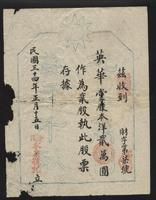 茲收到
英華堂䕃本洋貳萬圓
作為壹股執此股票
存據
民國三十四年三月十五日
立
財字第柒號